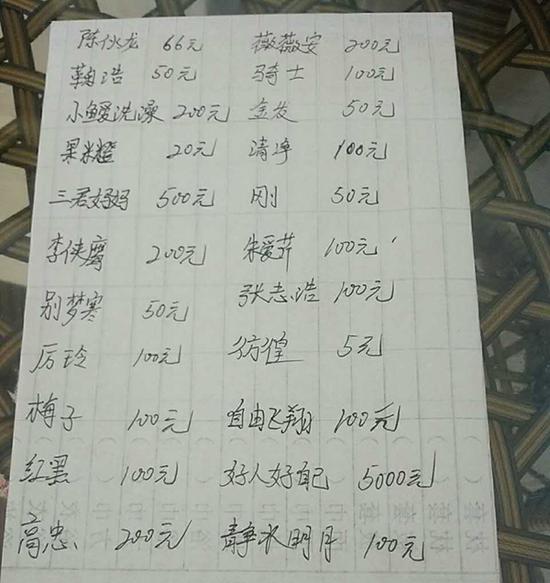 陈伙龙 66元 薇薇安 200元
鞠浩 50元 骑士 100元
小鳗洗澡 200元 金发 50元
果米橙 20元 清净 100元
三君妈妈 500元 刚 50元
李侠 200元 朱爱芹 100元
别梦寒 50元 张志浩 100元
厉玲 100元 彷徨 5元
梅子 100元 自由飞翔 100元
红黑 100元 好人好自己 5000元
高忠 200元 静水明月 100元